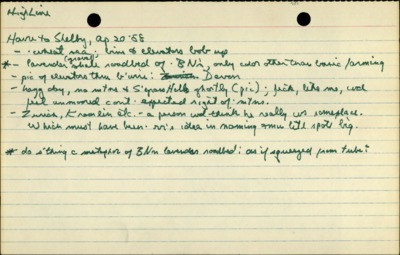 HighLine
Havre to Shelby, ap 20 '88
- wheat sea; bins & elevators bob up
* - lavender (gravel) shale roadbed of BN's, only color other than basic farming
- pic of elevators thru b'wire: Devon
- hazy day, no mtns & S'grass Hills ghostly (pic.); feck, like me, wd
feel unmoored cont. expected sight of mtns.
- Zurich, Kremlin etc. - a person wd think he really ws someplace.
Which must have been rr's idea in naming these little spots
* do s'thing c metaphor of BNn lavender roadbed: as if squeezed from tube?